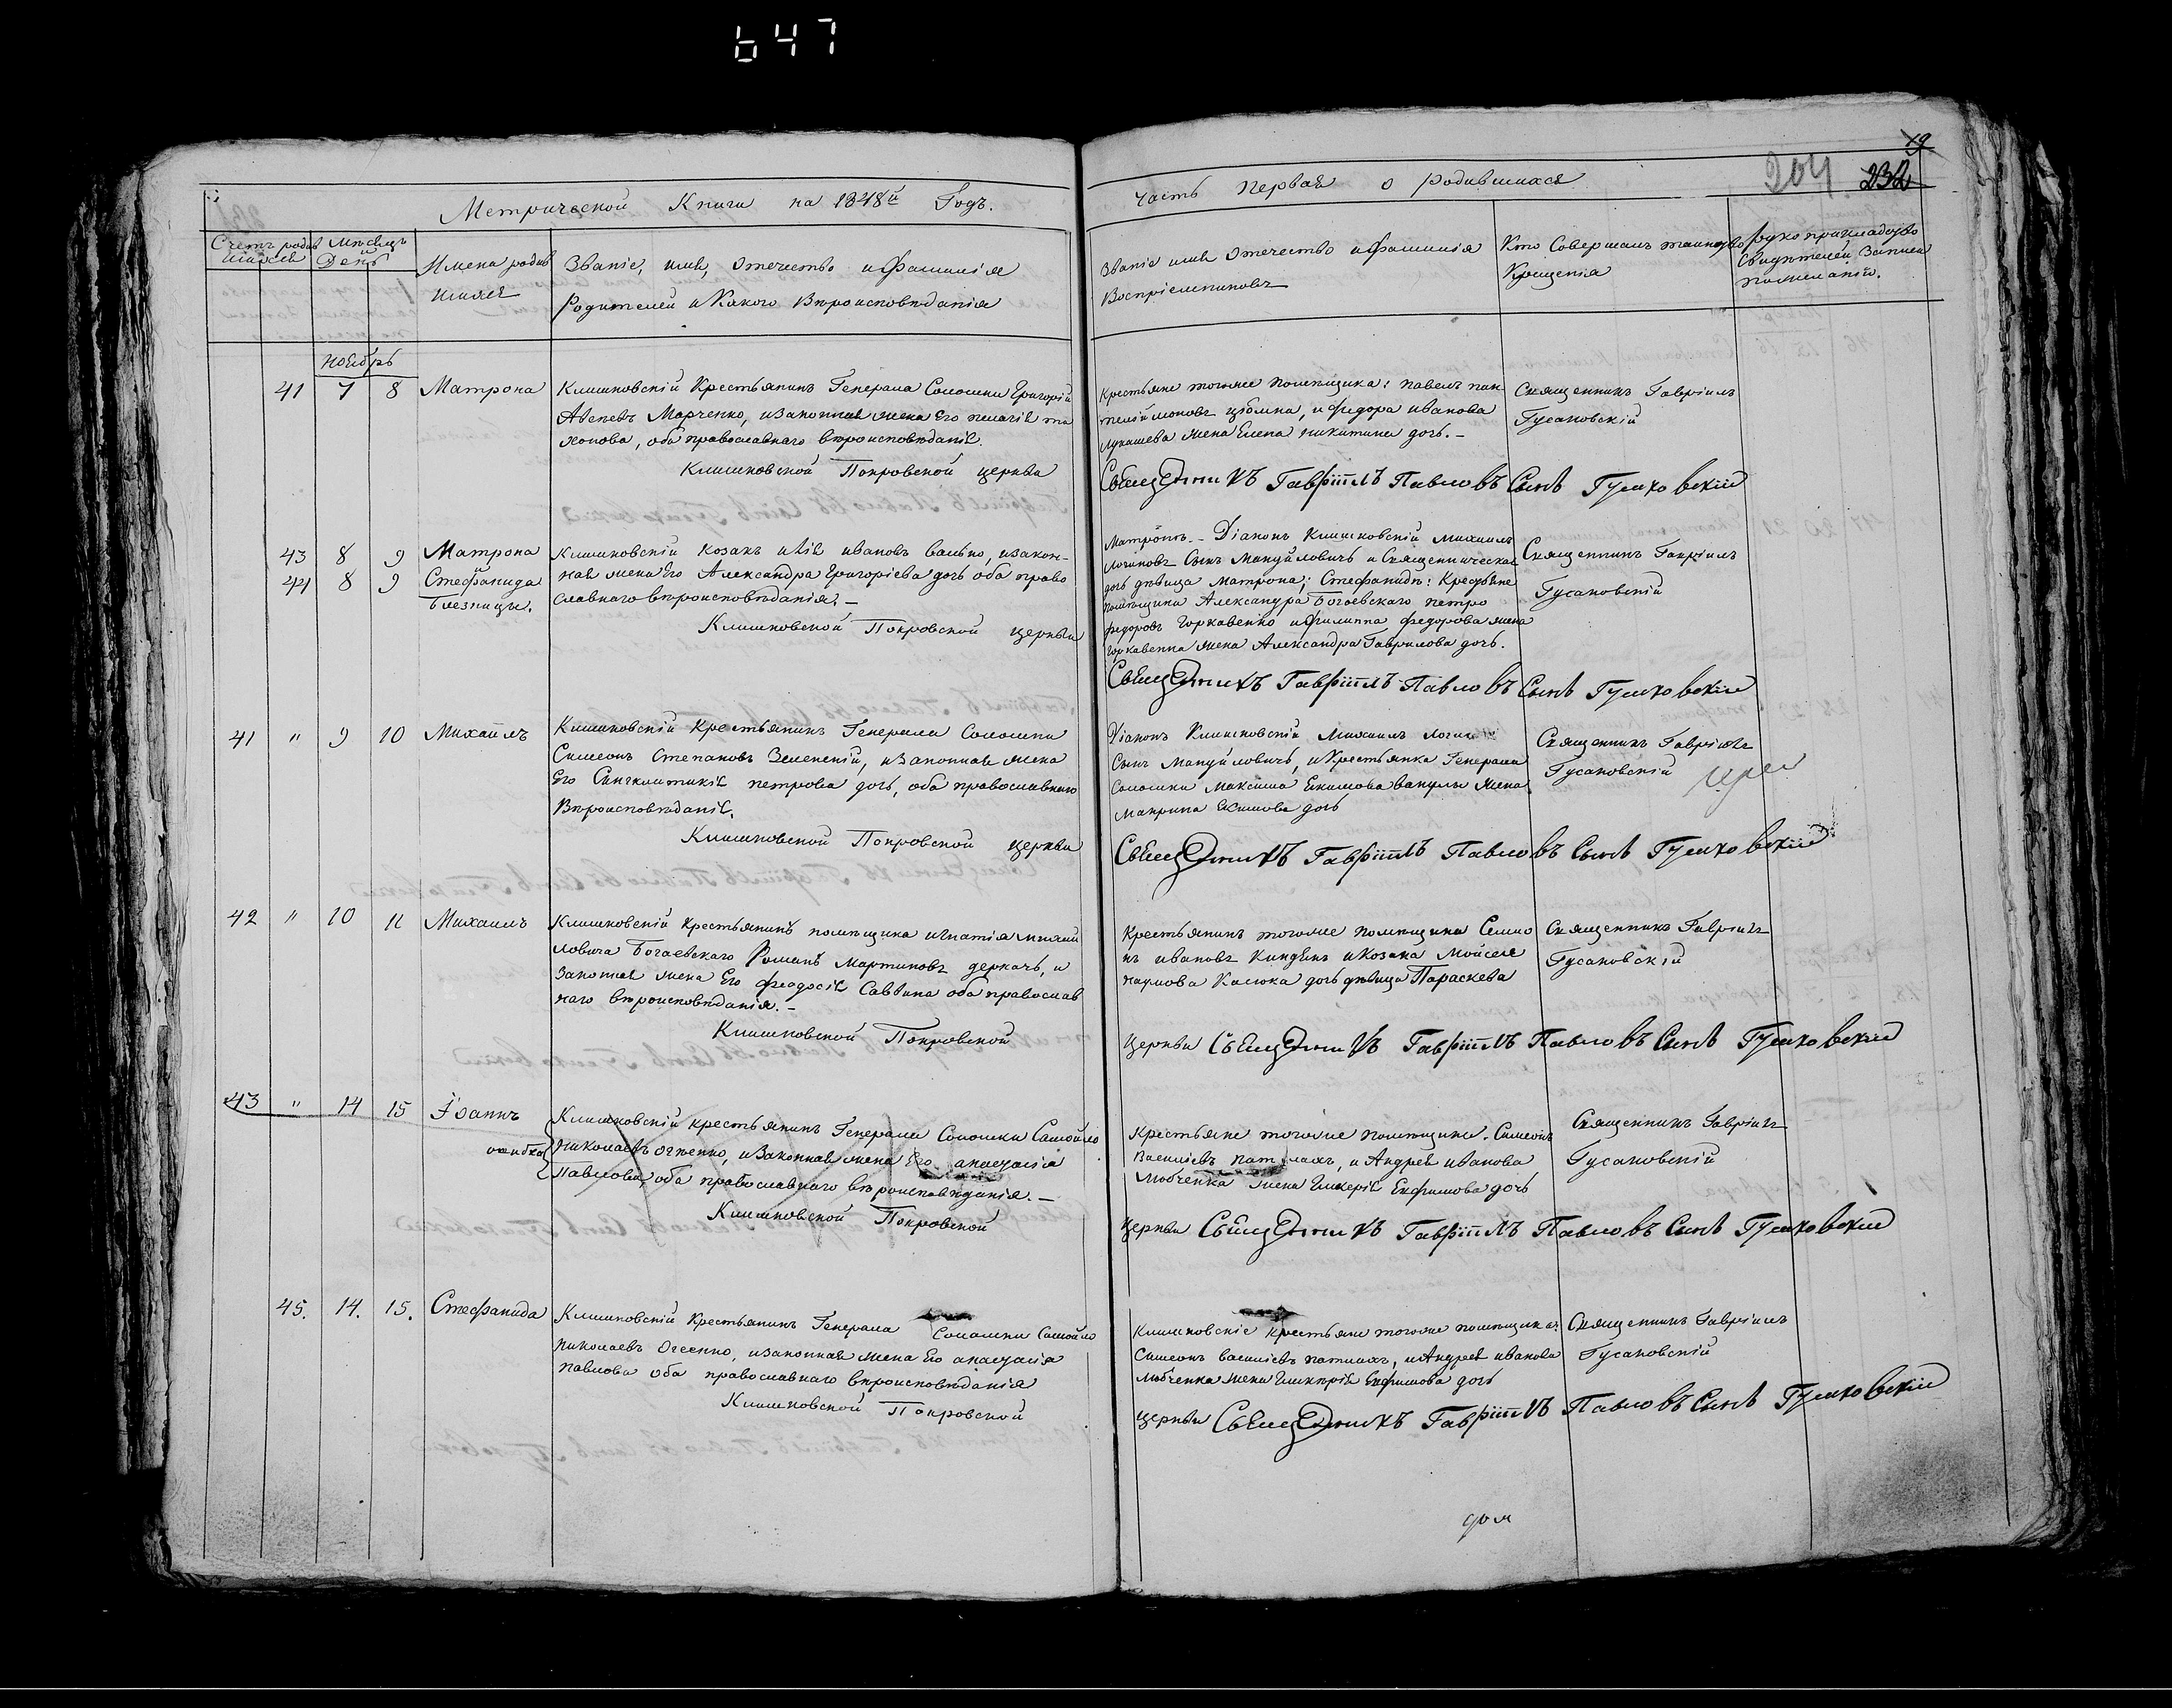 647
19
204 232
Метрической Книги на 1848й Годъ.
Часть Первая о родившихся
Счетъ родив
шихся
Мѣсяцъ
и
День
Имена родив
шихся
Званіе, имя, отечество и фамилія
Родителей и Какого Вѣроисповѣданія
Званіе имя отечество и фамилія
Воспріемниковъ
Кто Совершалъ таинство
Крещенія
рукоприкладство
Свидѣтелей Записи
по желанію.
ноябрь
41 7 8 Матрона
Клишковскій Крестьянинъ Генерала Соломки Григорій
Марченко, изаконная жена Его пелагія
оба православнаго вѣроисповѣданія.
Клишковской Покровской церкви
Крестьяне тогоже помѣщика: павелъ пан-
и федора иванова
жена Елена никитина дочь. –
Священникъ Гавріилъ
Гусаковскій
Священникъ Гавріилъ Павловъ Сынъ Гусаковскій
43 8 9 Матрона
и
44 8 9 Стефанида
близницы.
Клишковскій козакъ ивановъ изакон-
ная жена Его Александра Григоріева дочь оба право
славнаго вѣроисповѣданія. –
Клишковской Покровской церкви
Діаконъ Клишковскій михаилъ
логиновъ Сынъ Мануйловичъ и Священническая
дочь дѣвица матрона; Стефаниды: Крестьяне
помѣщика Александра Богаевскаго петро
федоровъ Горкавенко и филиппа федорова жена
жена Александра Гаврилова дочь.
Священникъ Гавріилъ
Гусаковскій
Священникъ Гавріилъ Павловъ Сынъ Гусаковскій
41 " 9 10 Михаилъ
Клишковскій Крестьянинъ Генерала Соломки
Симеонъ Степановъ Зеленскій, изаконная жена
Его Синклитикія петрова дочь, оба православнаго
Вѣроисповѣданія.
Клишковской Покровской церкви
Діаконъ Клишковскій Михаилъ
Сынъ Мануйловичъ, и Крестьянка Генерала
Соломки Максима Екимова жена
Екимова дочь
Священникъ Гавріилъ
Гусаковскій
Священникъ Гавріилъ Павловъ Сынъ Гусаковскій
42 " 10 11 Михаилъ
Клишковскій Крестьянинъ помѣщика игнатія михай
ловича Богаевскаго Романъ Мартиновъ деркачь, и
Законная жена Его феодосія Саввина оба православ
наго вѣроисповѣданія. –
Клишковской Покровской
Крестьянинъ тогоже помѣщика Семио
нъ ивановъ и Козака Мойсея
наумова дочь дѣвица Параскева
Священникъ Гавріилъ
Гусаковскій
Церкви Священникъ Гавріилъ Павловъ Сынъ Гусаковскій
43 " 14 15 Іоаннъ
ошибка
Клишковскій крестьянинъ Генерала Соломки Самойло
Николаевъ огіенко, изаконная жена Его анастасія
Павлова, оба православнаго вѣроисповѣданія. –
Клишковской Покровской
Крестьяне тогоже помѣщика. Симеонъ
Василіевъ и Андрея иванова
Любченка жена Гликерія Ефимова дочь
Священникъ Гавріилъ
Гусаковскій
Церкви Священникъ Гавріилъ Павловъ Сынъ Гусаковскій
45. 14. 15. Стефанида
Клишковскій Крестьянинъ Генерала Соломки Самойло
Николаевъ Огеенко, изаконная жена Его анастасія
павлова оба православнаго вѣроисповѣданія
Клишковской Покровской
Клишковскіе крестьяне тогоже помѣщика:
Симеонъ василіевъ и Андрея иванова
любченка жена Гликерія Ефимова дочь
Священникъ Гавріилъ
Гусаковскій
церкви Священникъ Гавріилъ Павловъ Сынъ Гусаковскій